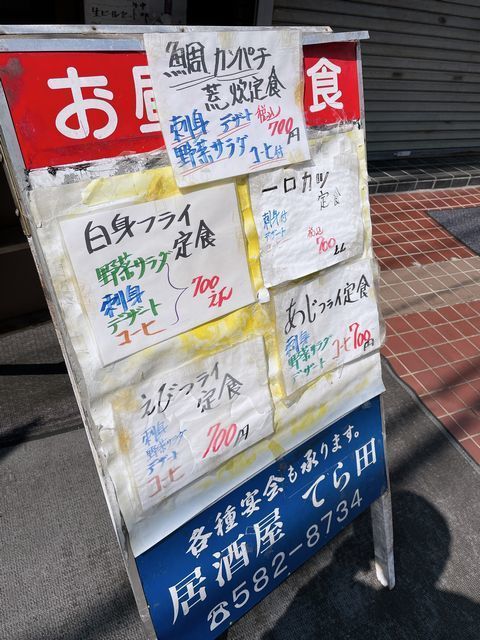 お昼
食
鯛カンパチ
荒炊定食
刺身 デザート 税込
野菜サラダ コーヒ付 700円
一口カツ
定食
刺身付
デザート 税込
700えん
白身フライ
定食
野菜サラダ
刺身
デザート
コーヒ
700
えん
あじフライ定食
刺身
野菜サラダ
デザート コーヒ 700円
えびフライ
定食
刺身
野菜サラダ
デザート
コーヒ
700円
各種宴会も承ります。
居酒屋 てら田
582-8734